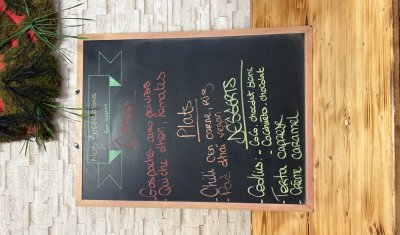 Nos suggestions
Entrées
- Gaspacho aux poivrons
- Quiche thon, tomates
Plats
- Chili con carne, riz
- Pad thaï vegan
DESSERTS
- Cookies : - Coco, chocolat blanc
- Cacahuètes, chocolat
- Torta caprese
- Crème caramel